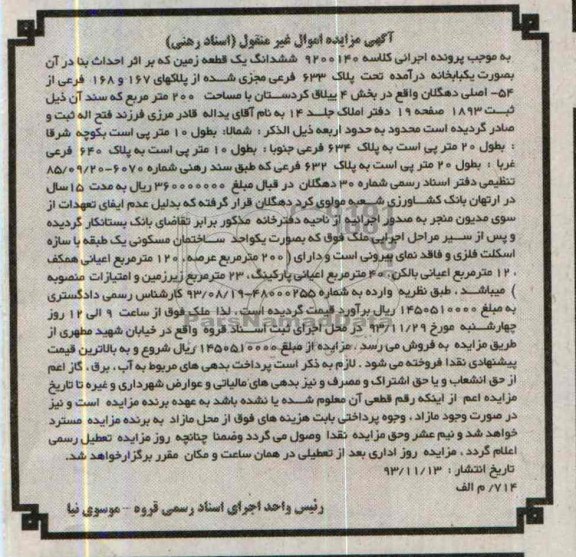 آگهی مزایده اموال غیر منقول (اسناد رهنی)
به موجب پرونده اجرائی کلاسه ۹۲۰۰۱۴۰ ششدانگ یک قطعه زمین که بر اثر احداث بنا در آن
بصورت یکبابخانه درآمده تحت پلاک ۶۳۳ فرعی مجزی شده از پلاکهای ۱۶۷ و ۱۶۸ فرعی از
۵۴- اصلی دهگلان واقع در بخش ۴ ییلاق کردستان با مساحت ۲۰۰ متر مربع که سند آن ذیل
ثبت ۱۸۹۳ صفحه ۱۹ دفتر املاک جلد ۱۴ به نام آقای یداله قادر مرزی فرزند فتح اله ثبت و
صادر گردیده است محدود به حدود اربعه ذیل الذکر : شمالا: بطول ۱۰ متر پی است بکوچه شرقا
: بطول ۲۰ متر پی است به پلاک ۶۳۴ فرعی جنوبا : بطول ۱۰ متر پی است به پلاک ۶۴۰ فرعی
غربا : بطول ۲۰ متر پی است به پلاک ۶۳۲ فرعی که طبق سند رهنی شماره ۶۰۷۰-۸۵/۰۹/۲۰
تنظیمی دفتر اسناد رسمی شماره ۳۰ دهگلان در قبال مبلغ ۳۶۰۰۰۰۰۰۰ ریال به مدت ۱۵ سال
در ارتهان بانک کشاورزی شعبه مولوی کرد دهگلان قرار گرفته که بدلیل عدم ایفای تعهدات از
سوی مدیون منجر به صدور اجرائیه از ناحیه دفترخانه مذکور برابر تقاضای بانک بستانکار گردیده
و پس از سیر مراحل اجرایی ملک فوق که بصورت یکواحد ساختمان مسکونی یک طبقه با سازه
اسکلت فلزی و فاقد نمای بیرونی است و دارای ( ۲۰۰ مترمربع عرصه ، ۱۲۰ مترمربع اعیانی همکف
، ۱۲ مترمربع اعیانی بالکن ، ۴۰ مترمربع اعیانی پارکینگ ، ۲۳ مترمربع زیرزمین و امتیازات منصوبه
) میباشد . طبق نظریه وارده به شماره ۴۸۰۰۰۲۵۵-۹۳/۰۸/۱۹ کارشناس رسمی دادگستری
به مبلغ ۱۴۵۰۵۱۰۰۰۰ ریال برآورد قیمت گردیده است . لذا ملک فوق از ساعت ۹ الی ۱۲ روز
چهارشنبه مورخ ۹۳/۱۱/۲۹ در محل اجرای ثبت اسناد قروه واقع در خیابان شهید مطهری از
طریق مزایده به فروش می رسد . مزایده از مبلغ ۱۴۵۰۵۱۰۰۰۰ ریال شروع و به بالاترین قیمت
پیشنهادی نقدا فروخته می شود . لازم به ذکر است پرداخت بدهی های مربوط به آب ، برق ، گاز اعم
از حق انشعاب و یا حق اشتراک و مصرف و نیز بدهی های مالیاتی و عوارض شهرداری و غیره تا تاریخ
مزایده اعم از اینکه رقم قطعی آن معلوم شده یا نشده باشد به عهده برنده مزایده است و نیز
در صورت وجود مازاد ، وجوه پرداختی بابت هزینه های فوق از محل مازاد به برنده مزایده مسترد
خواهد شد و نیم عشر وحق مزایده نقدا وصول می گردد وضمنا چنانچه روز مزایده تعطیل رسمی
اعلام گردد ، مزایده روز اداری بعد از تعطیلی در همان ساعت و مکان مقرر برگزار خواهد شد.
تاریخ انتشار : ۹۳/۱۱/۱۳
۷۱۴/ م الف
رئیس واحد اجرای اسناد رسمی قروه - موسوی نیا